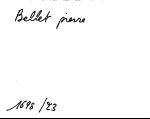 Bellet pierre
1698/23